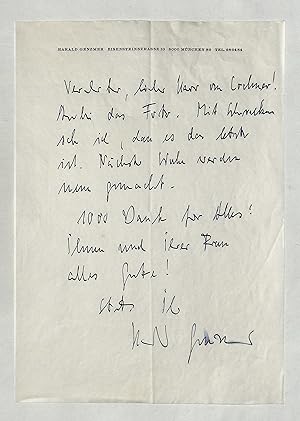 HARALD GENZMER EISENSTEINSTRASSE 10 8000 MÜNCHEN 80 TEL
Verehrter, lieber Herr von Lochner!
Anbei das Foto. Mit Schrecken
seh ich, dass es das letzte
ist. Nächste Woche werden
neue gemacht.
1000 Dank für Alles!
Ihnen und Ihrer Frau
alles Gute!
Stets Ihr
Genzmer